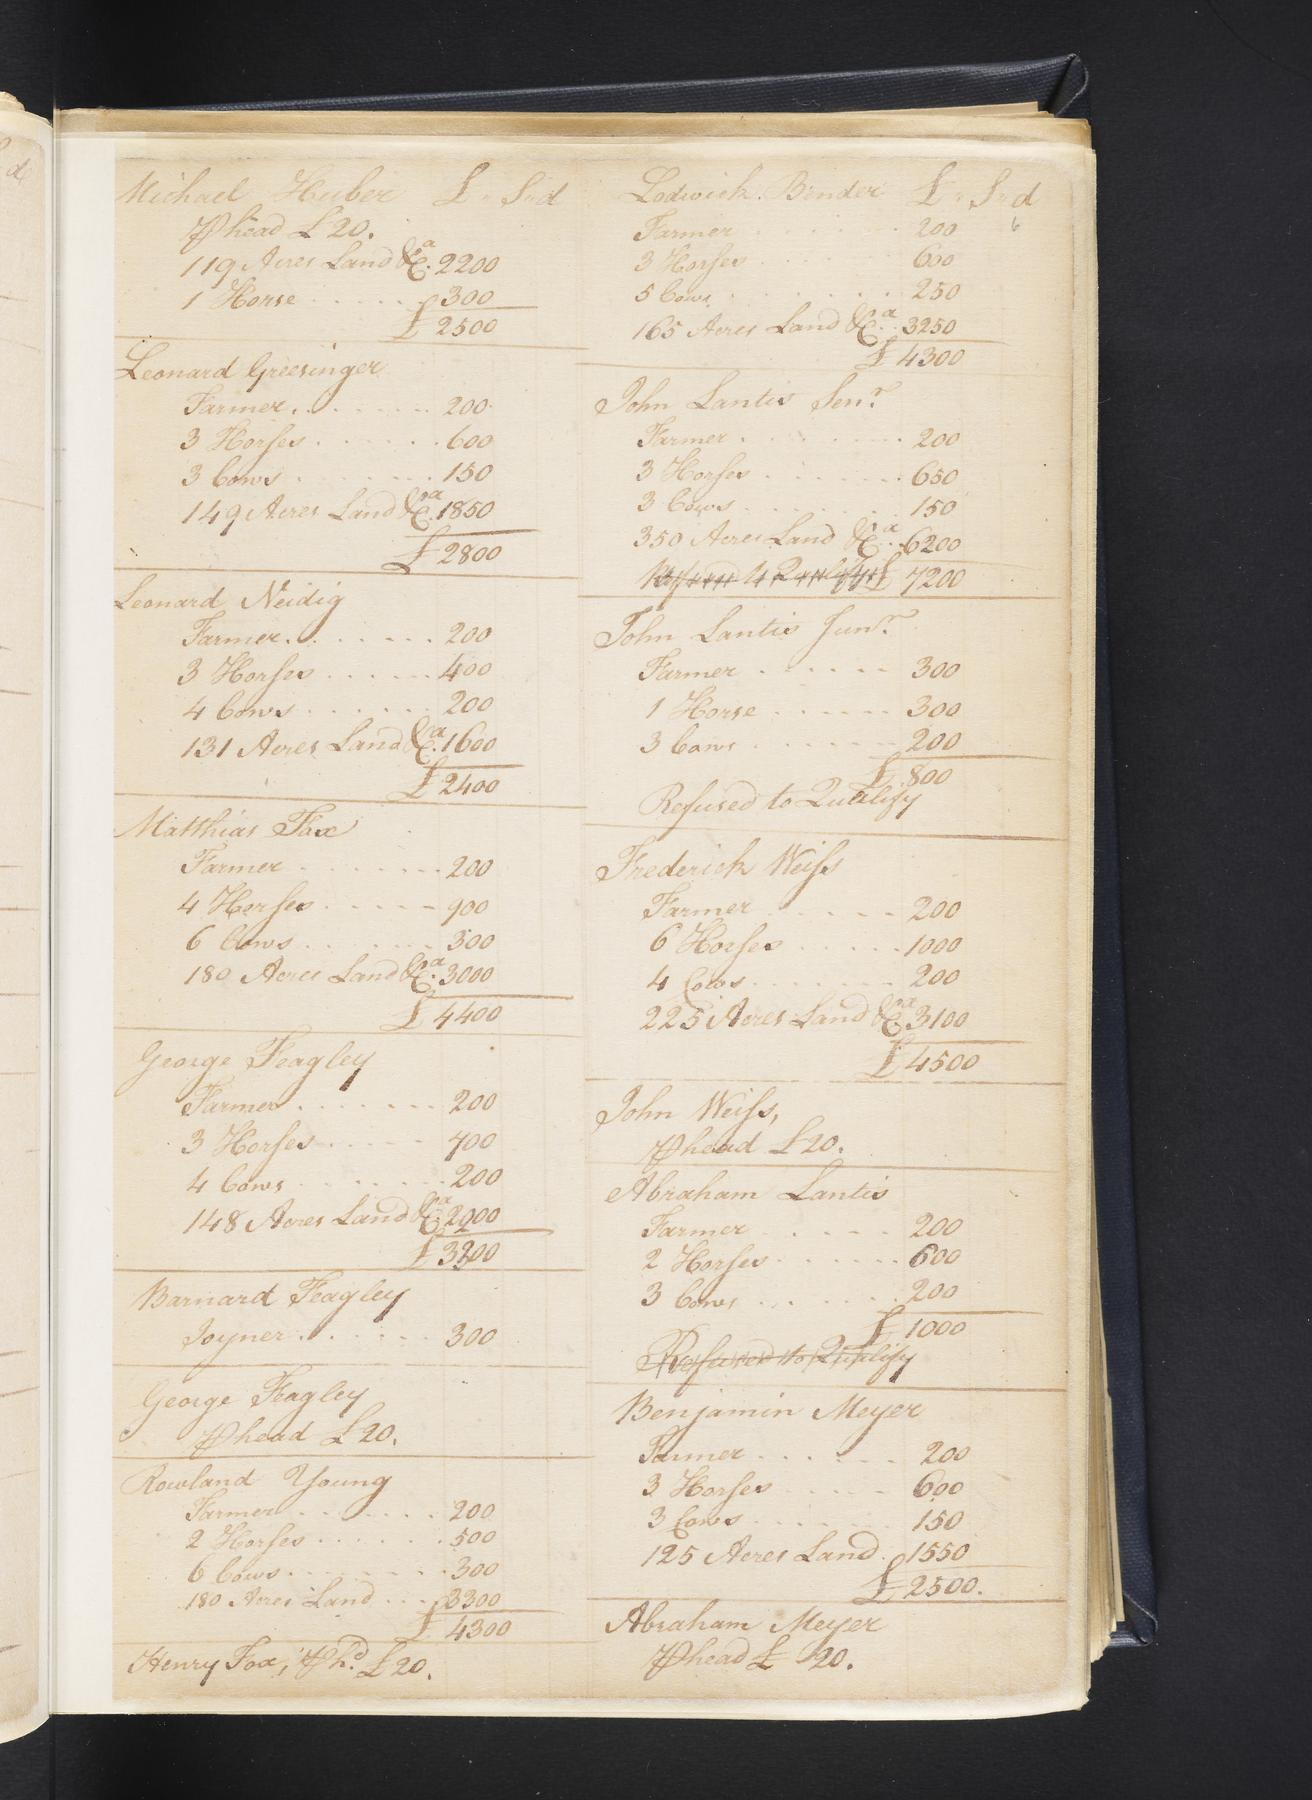 Michael Huber £ " S " d
⅌ head £ 20.
119 Acres Land &Ca. 2200
1 Horse . . . . . . 300
£ 2500
Leonard Greesinger
Farmer . . . . . . . . 200
3 Horses . . . . . . . 600
3 Cows . . . . . . . . 150
149 Acres Land &Ca. 1850
£ 2800
Leonard Neidig
Farmer . . . . . . . . 200
3 Horses . . . . . . 400
4 Cows . . . . . . . 200
131 Acres Land &Ca. 1600
£ 2400
Matthias Fox
Farmer . . . . . . . . 200
4 Horses . . . . . . 900
6 Cows . . . . . . . 300
180 Acres Land &Ca. 3000
£ 4400
George Feagley
Farmer . . . . . . . 200
3 Horses . . . . . 700
4 Cows . . . . . . . 200
148 Acres Land &Ca.
£
Barnard Feagley
Joyner . . . . . . . 300
George Feagley
⅌ head £ 20.
Rowland Young
Farmer . . . . . . . 200
2 Horses . . . . . . . 500
6 Cows . . . . . . . . 300
180 Acres Land . . . 3300
£ 4300
Henry Fox, ⅌ hd. £ 20.
Lodwick Bender £ " S " d
Farmer . . . . . . . 200
3 Horses . . . . . . 600
5 Cows . . . . . . . 250
165 Acres Land &Ca. 3250
£ 4300
John Lantis Senr.
Farmer . . . . . . . . 200
3 Horses . . . . . . . 650
3 Cows . . . . . . . . 150
350 Acres Land &Ca. 6200
£ 7200
John Lantis Junr.
Farmer . . . . . . 300
1 Horse . . . . . . 300
3 Cows . . . . . . . 200
£ 800
Refused to Qualify
Frederick Weiss
Farmer . . . . . . 200
6 Horses . . . . . 1000
4 Cows . . . . . . . 200
225 Acres Land &Ca 3100
£ 4500
John Weiss,
⅌ head £ 20.
Abraham Lantis
Farmer . . . . . . 200
2 Horses . . . . . . . 600
3 Cows . . . . . . . 200
£ 1000
Refused to Qualify
Benjamin Meyer
Farmer . . . . . . . 200
3 Horses . . . . . 600
3 Cows . . . . . . . 150
125 Acres Land . 1550
£ 2500.
Abraham Meyer
⅌ head £ 20.